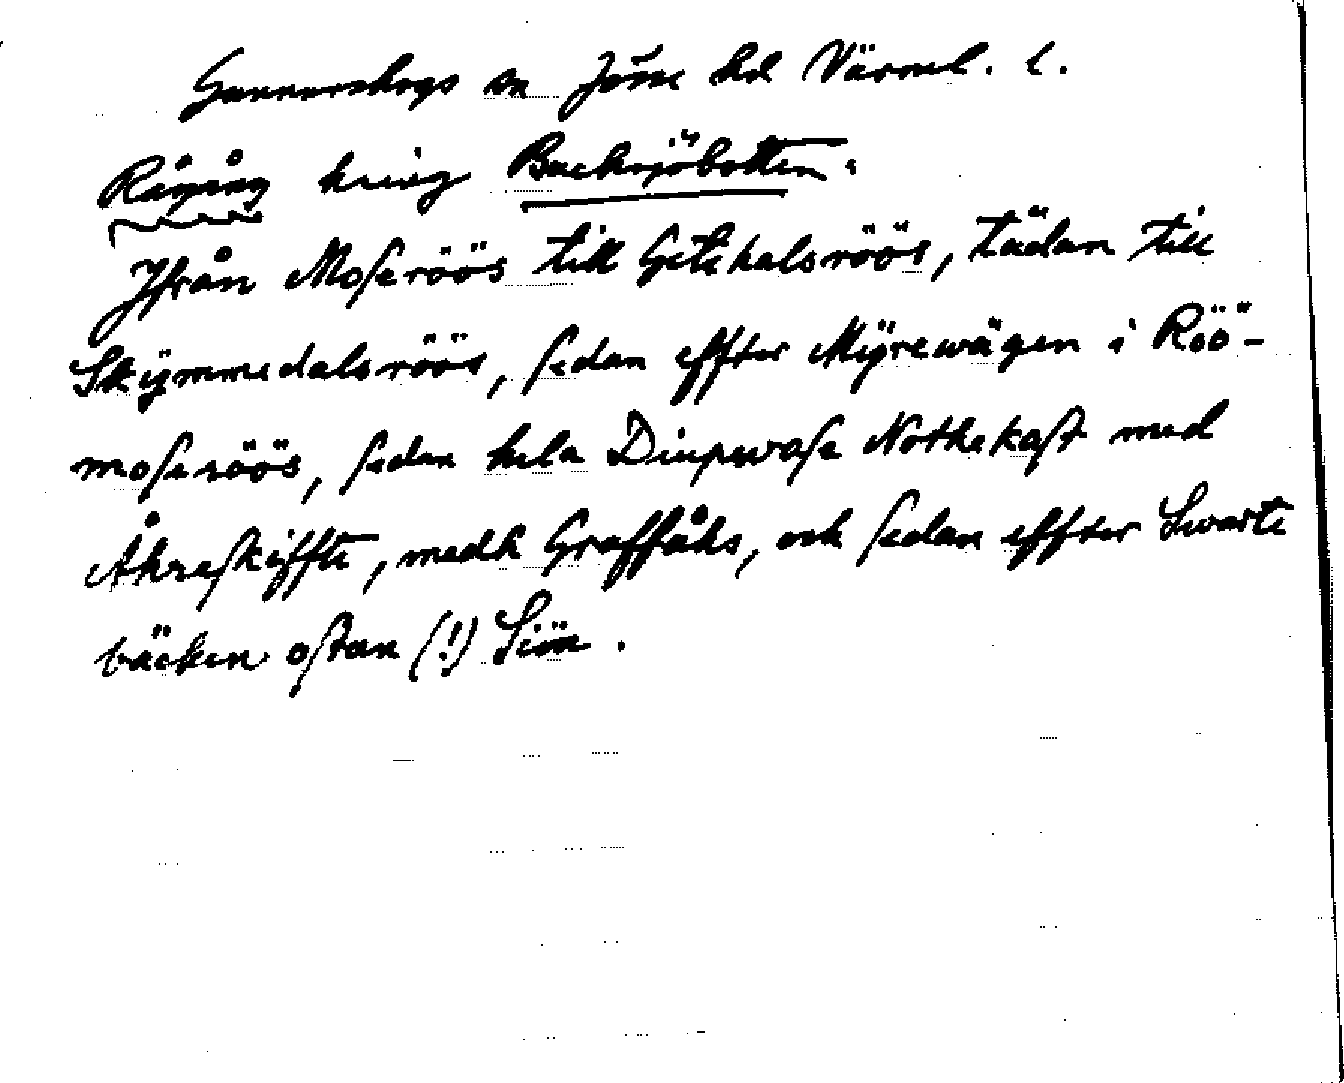 Gunnarskogs sn Jösse hd Värml. l.
Rågång kring Backsjöbotten.
Ifrån Moseröös till Getehalsröös, tädan till
Skÿmmedalsröös, sedan effter Mÿrewägen i Röö-
moseröös, sedan hela Diupwase Nothekast med
Åkreskiffte, medh Graffåhs, och sedan effter Swarte
bäcken ostan (!) Siön.